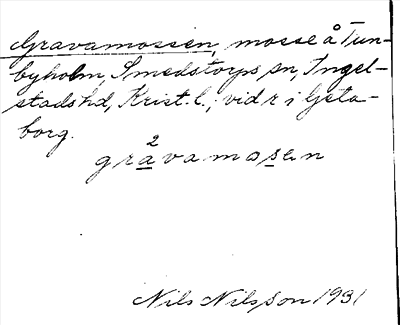 Gravamossen, mosse å Tun-
byholm, Smedstorps sn, Ingel-
stads hd, Krist. l.; vid r i Geta-
borg.
2
gravamosen
Nils Nilsson 1931